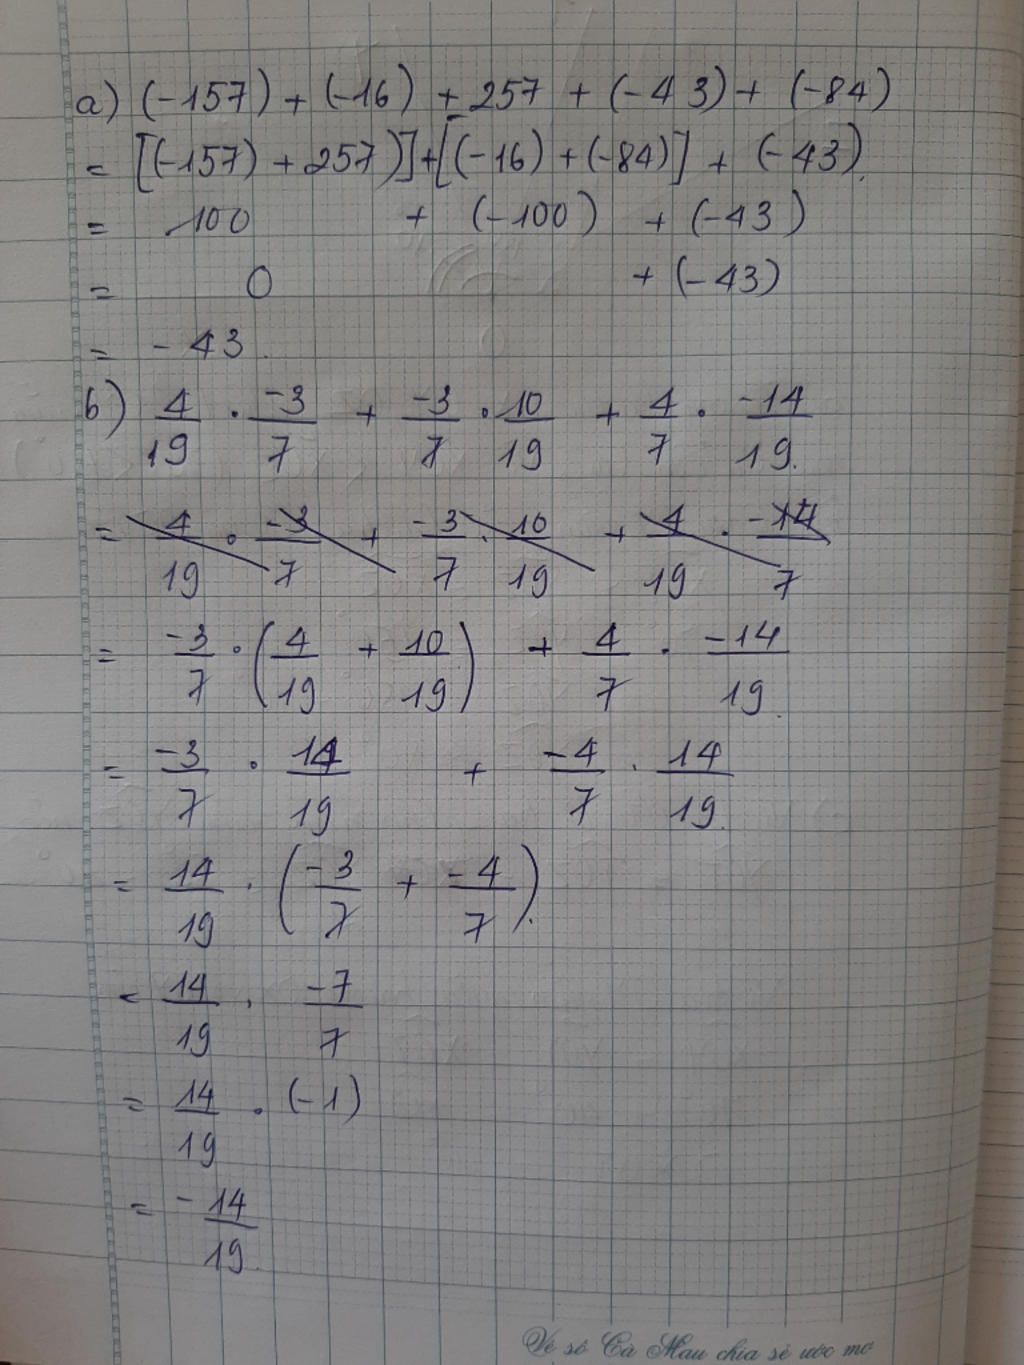 a) (-157) + (-16) + 257 + (-43) + (-84)
= [(-157) + 257)] + [(-16) + (-84)] + (-43).
= 100 + (-100) + (-43)
= 0 + (-43)
= -43.
b) 4/19 . -3/7 + -3/7 . 10/19 + 4/7 . -14/19.
= 4/19 . -3/7 + -3/7 . 10/19 + 4/19 . -14/7
= -3/7 . (4/19 + 10/19) + 4/7 . -14/19.
= -3/7 . 14/19 + -4/7 . 14/19.
= 14/19 . (-3/7 + -4/7).
= 14/19 . -7/7
= 14/19 . (-1)
= -14/19.
Vé số Cà Mau chia sẻ ước mơ